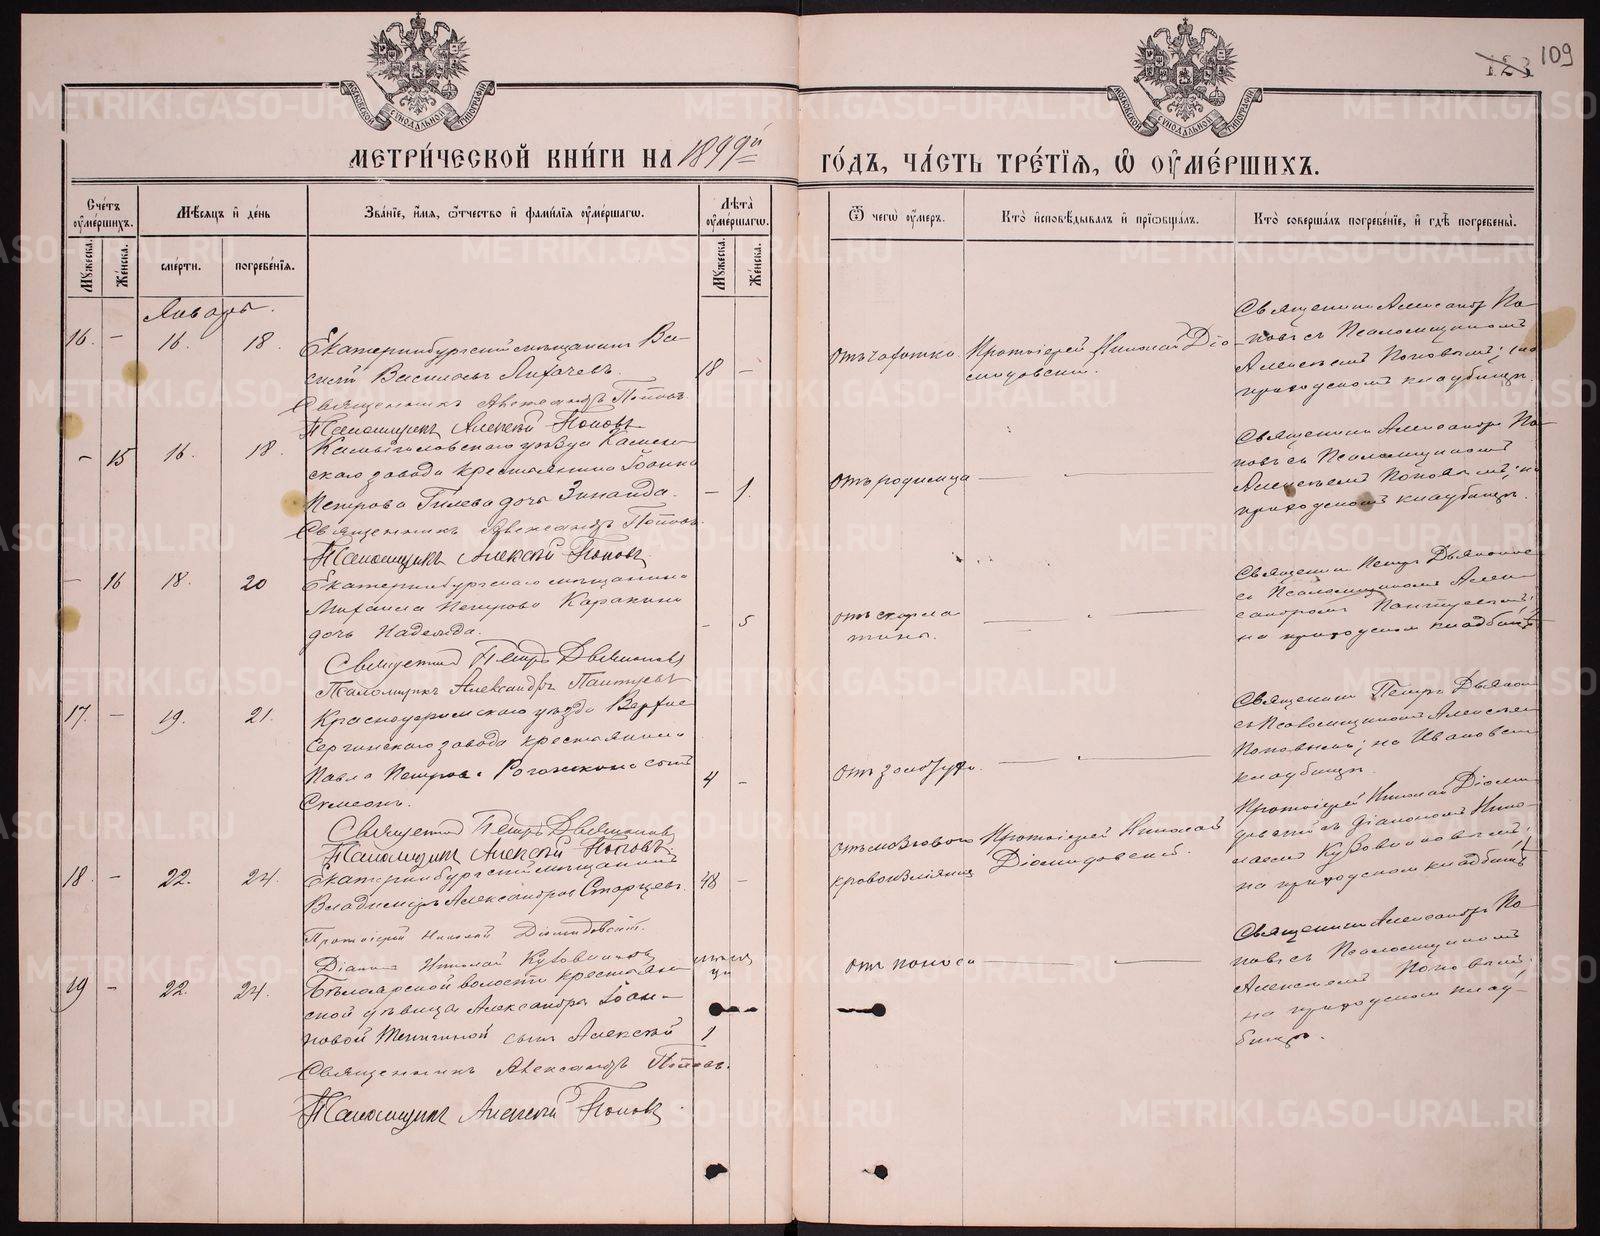 123 109
МОСКОВСКОЙ СѴНОДАЛЬНОЙ ТИПОГРАФІИ
МОСКОВСКОЙ СѴНОДАЛЬНОЙ ТИПОГРАФІИ
МЕТРИ́ЧЕСКОЙ КНИ́ГИ НА 1899й
ГО́ДЪ, ЧА́СТЬ ТРЕ́ТІѦ, Ѡ ОУМЕ́РШИХЪ.
Сче́тъ оумершихъ.
Мужеска.
Женска.
Мѣсяцъ и де́нь
сме́рти.
погребе́нїя.
Зва́нїе, имя, ѻтчество и фами́лїя оумершагѡ.
Лѣта оумершагѡ.
Мужеска.
Женска.
Ѿ чегѡ оумеръ.
Кто исповѣдывалъ и прїѡбщалъ.
Кто совершалъ погребе́нїе, и гдѣ погребены.
Январь.
16. — 16. 18.
Екатеринбургскій мѣщанинъ Ва-
силій Васильевъ Лихачевъ. 18 —
Священникъ Александръ Поповъ.
Псаломщикъ Алексѣй Поповъ
Отъ чахотки.
Протоіерей Николай Діо-
мидовскій.
Священникъ Александръ По-
повъ съ Псаломщикомъ
Алексѣемъ Поповымъ; на
приходскомъ кладбищѣ.
— 15 16. 18.
Камышловскаго уѣзда Каменс-
скаго завода крестьянина Іоанна
Петрова Гилева дочь Зинаида. — 1.
Священникъ Александръ Поповъ.
Псаломщикъ Алексѣй Поповъ.
Отъ родимца
Священникъ Александръ По-
повъ съ Псаломщикомъ
Алексѣемъ Поповымъ; на
приходскомъ кладбищѣ.
— 16 18. 20
Екатеринбургскаго мѣщанина
Михаила Петрова Каракина
дочь Надежда. — 5
Священникъ Петръ Двѣлионовъ
Псаломщикъ Александръ Пантуевъ
Отъ скарла
тины.
Священникъ Петръ
съ Псаломщикомъ Алек-
сандромъ Пантуевымъ;
на приходскомъ кладбищѣ
17. — 19. 21.
Красноуфимскаго уѣзда Верхне
Сергинскаго завода крестьянина
Павла Петрова Рогожкина сынъ
Симеонъ. 4 —
Священникъ Петръ
Псаломщикъ Алексѣй Поповъ.
Отъ золотухи.
Священникъ Петръ
съ Псаломщикомъ Алексѣем
Поповымъ; на Ивановскомъ
кладбищѣ.
18. — 22. 24.
Екатеринбургскій мѣщанинъ
Владиміръ Александровъ Старцевъ. 48 —
Протоіерей Николай Діомидовскій.
Діаконъ Николай Кузовниковъ
Отъ мозгового
кровоизліянія
Протоіерей Николай
Діомидовскій.
Протоіерей Николай Діоми-
довскій съ Діакономъ Нико-
лаемъ Кузовниковымъ;
на приходскомъ кладбищѣ
19 — 22. 24.
Бѣлоярской волости крестьян-
ской дѣвицы Александры Іоан-
новой сынъ Алексѣй
мѣсяцъ
1
Священникъ Александръ Поповъ.
Псаломщикъ Алексѣй Поповъ.
Отъ поноса
Священникъ Александръ По-
повъ съ Псаломщикомъ
Алексѣемъ Поповымъ;
на приходскомъ клад-
бищѣ.
METRIKI.GASO-URAL.RU